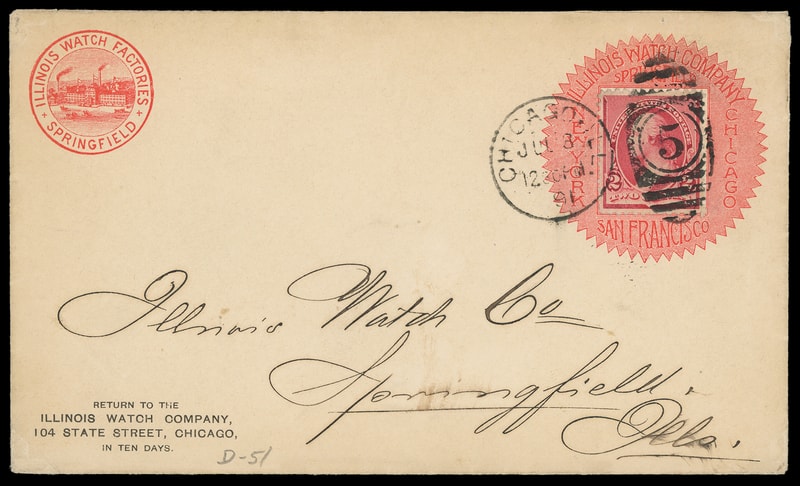 ILLINOIS WATCH FACTORIES
SPRINGFIELD
ILLINOIS WATCH COMPANY
CHICAGO
SAN FRANCISCO
NEW YORK
CHICAGO
JUL 8
91
5
2
TWO
Illinois Watch Co
Springfield.
Ills.
RETURN TO THE
ILLINOIS WATCH COMPANY,
104 STATE STREET, CHICAGO,
IN TEN DAYS.
D-51